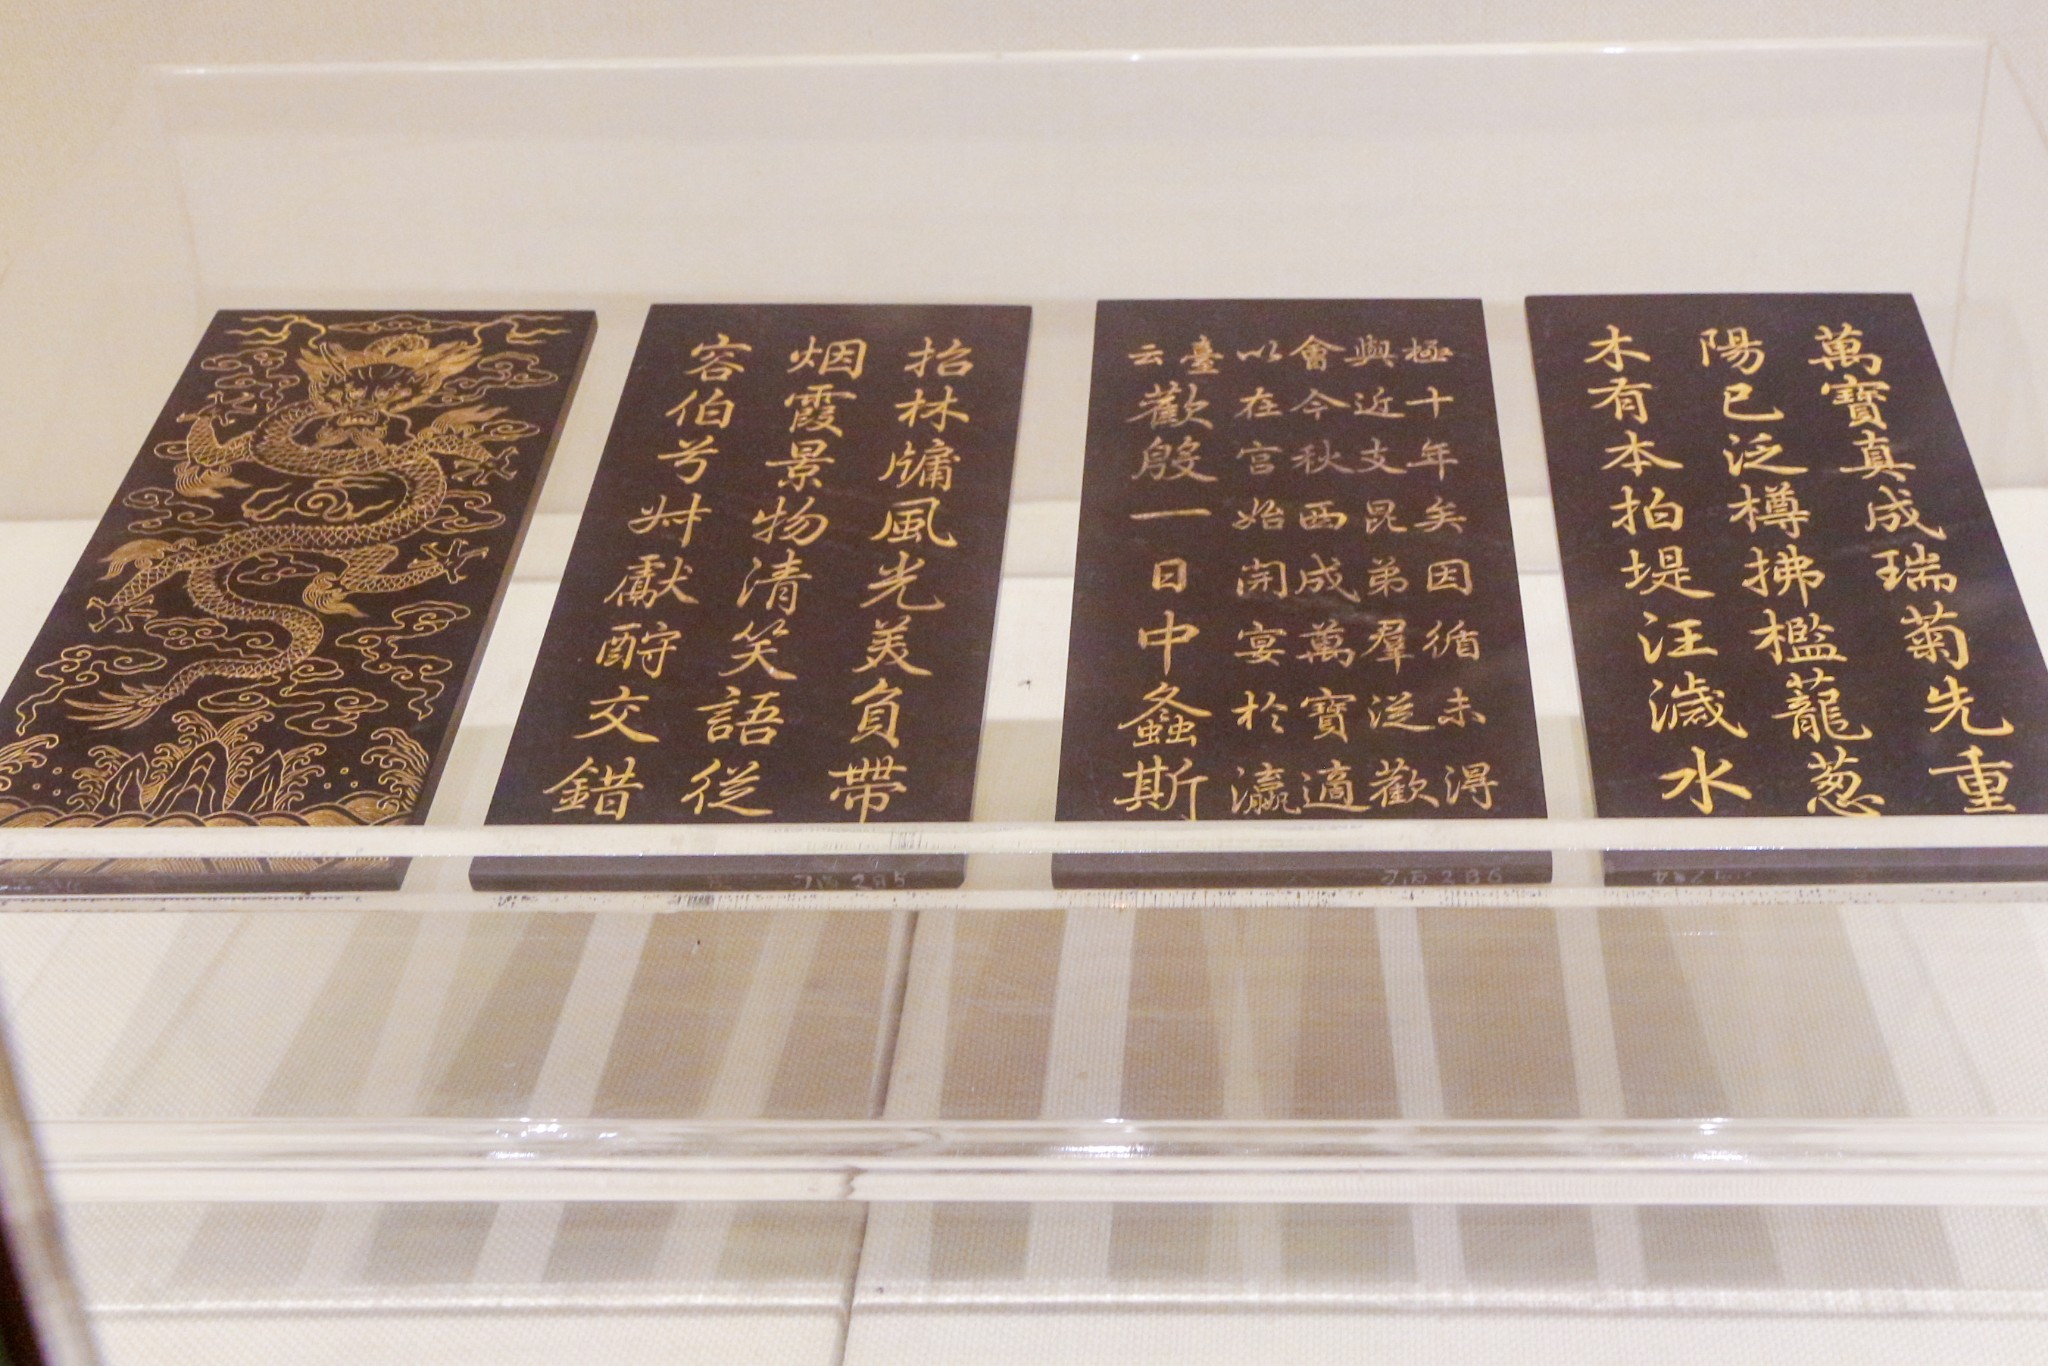 萬寶真成瑞菊先重
陽已泛樽拂檻蘢葱
木有本拍堤汪濊水
極十年矣因循未得
與近支昆弟羣從歡
會今秋西成萬寶適
以在宮始開宴於瀛
臺
云
歡殷一日中螽斯
招林牗風光美負帶
烟霞景物清笑語從
容伯兮獻酧交錯
285
286